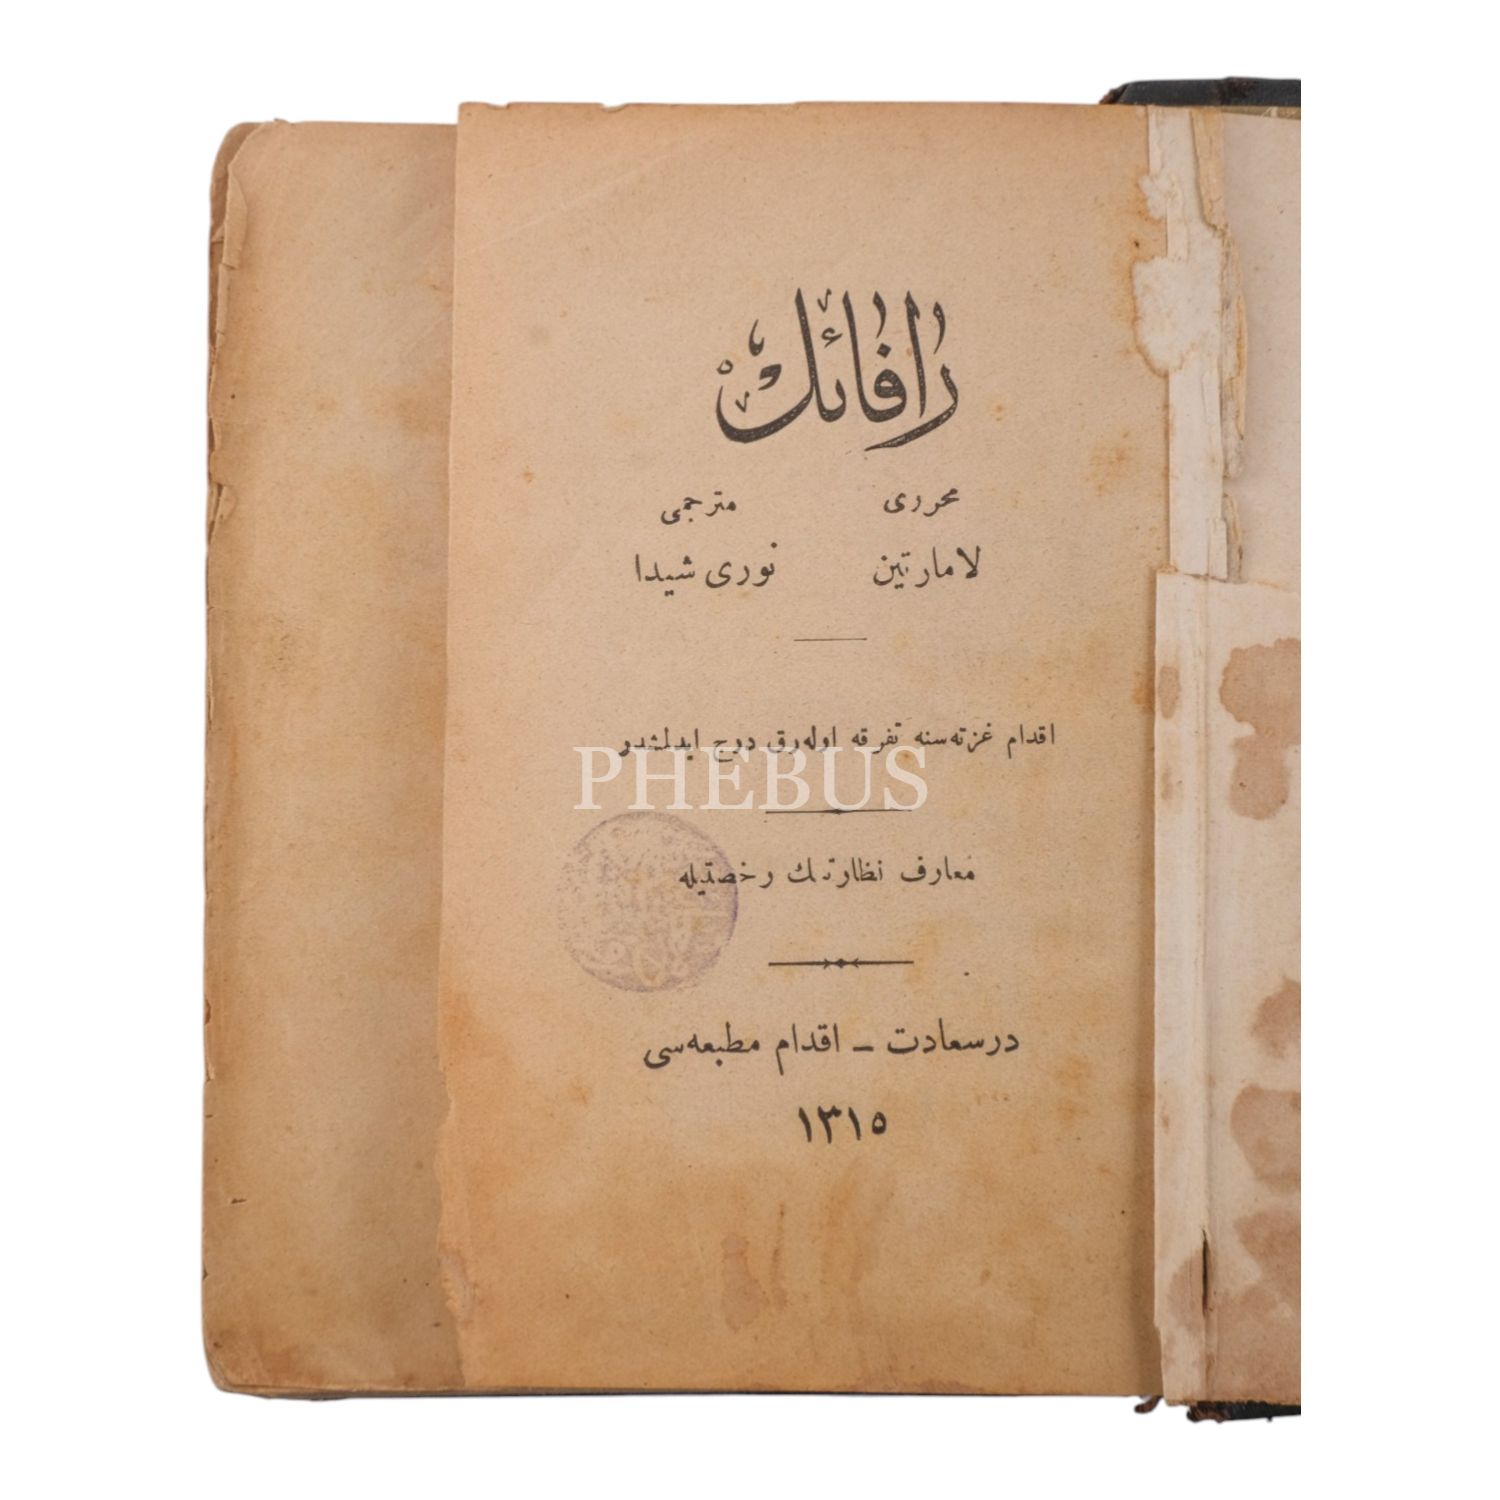 رافائل
محرری مترجمی
لامارتین نوری شیدا
اقدام غزته‌سنه تفرقه اوله‌رق درج ایدلمشدر
PHEBUS
معارف نظارتنك رخصتیله
درسعادت – اقدام مطبعه‌سی
١٣١٥